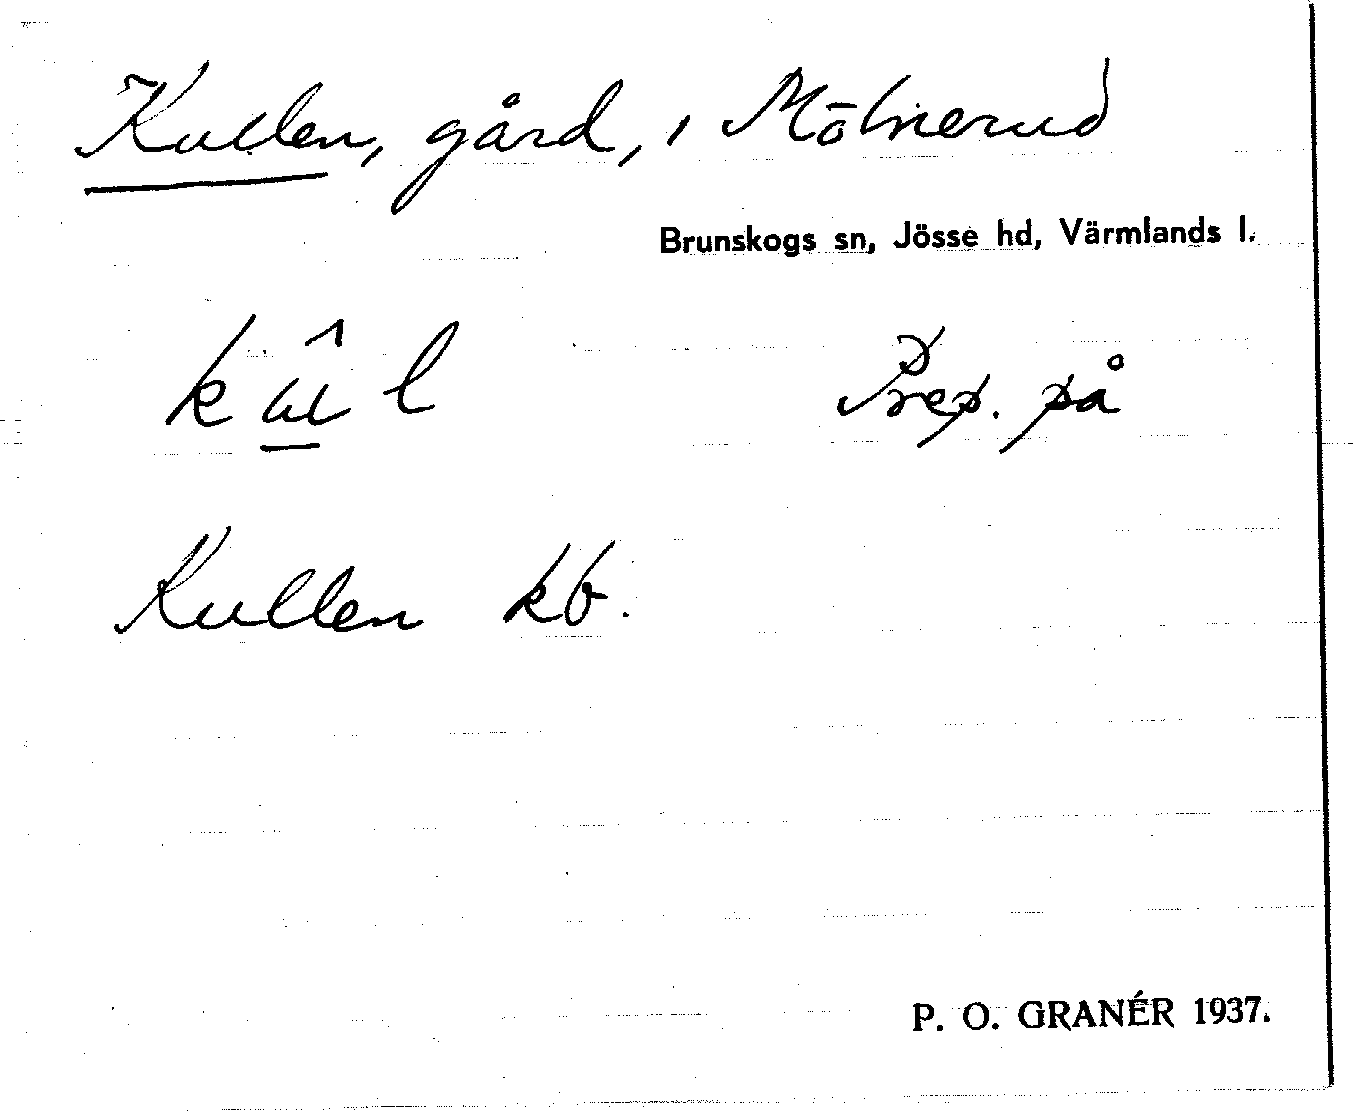 Kullen, gård, i Mölnerud
Brunskogs sn, Jösse hd, Värmlands l.
Prep. på
Kullen kb.
P. O. GRANÉR 1937.